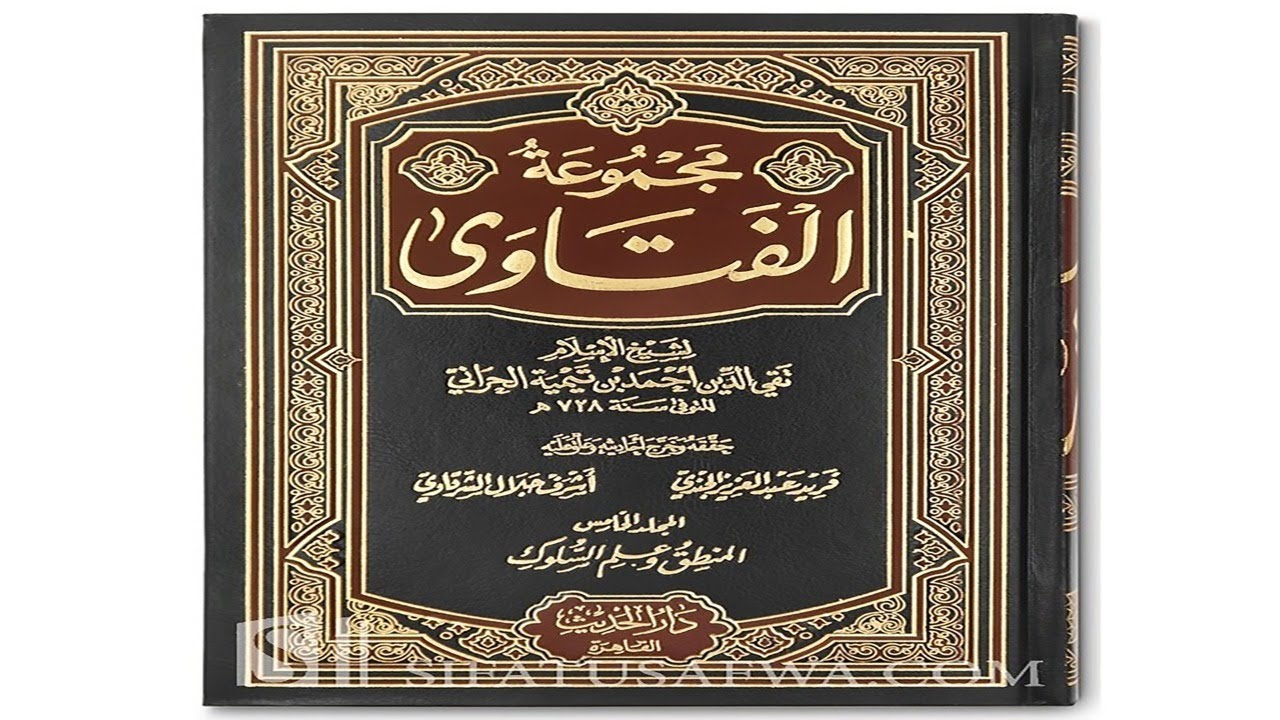 مَجْمُوعَةُ
الْفَتَاوَى
لشَيْخ الإِسْلَام
تَقي الدِّين أحْمَد بْن تَيمْيَة الحَرَّاني
المتوفى سنة ٧٢٨ هـ
حققه وخرج أحاديثه وعلق عليه
فريد عبد العزيز الجندي أشرف جلال الشرقاوي
المجلد الخامس
المنطق وعلم السلوك
دار الحديث
القاهرة
SIFATUSAFWA.COM